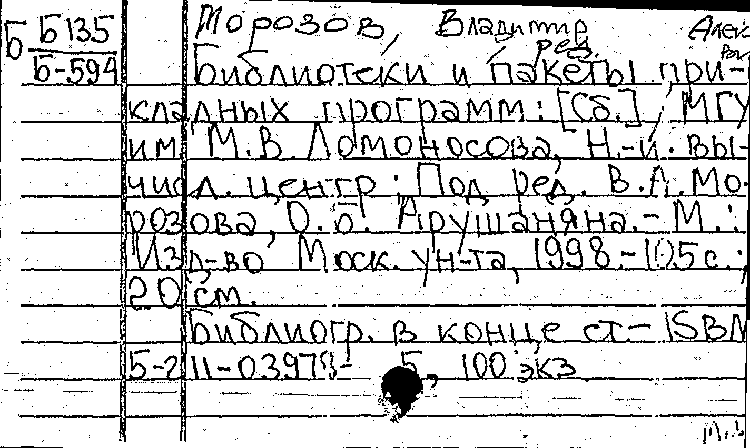 Морозов, Владимир Алекс
ред.
Б Б135
Б-594
Библиотеки и пакеты при-
кладных программ: [Сб.] / МГУ
им. М.В. Ломоносова, Н.-и. вы-
числ. центр; Под ред. В.А. Мо-
розова, О.Б. Арушаняна. - М.:
Изд-во Моск. ун-та, 1998. - 105 с.;
20 см.
Библиогр. в конце ст - ISBN
5-211-03978-5, 100 экз